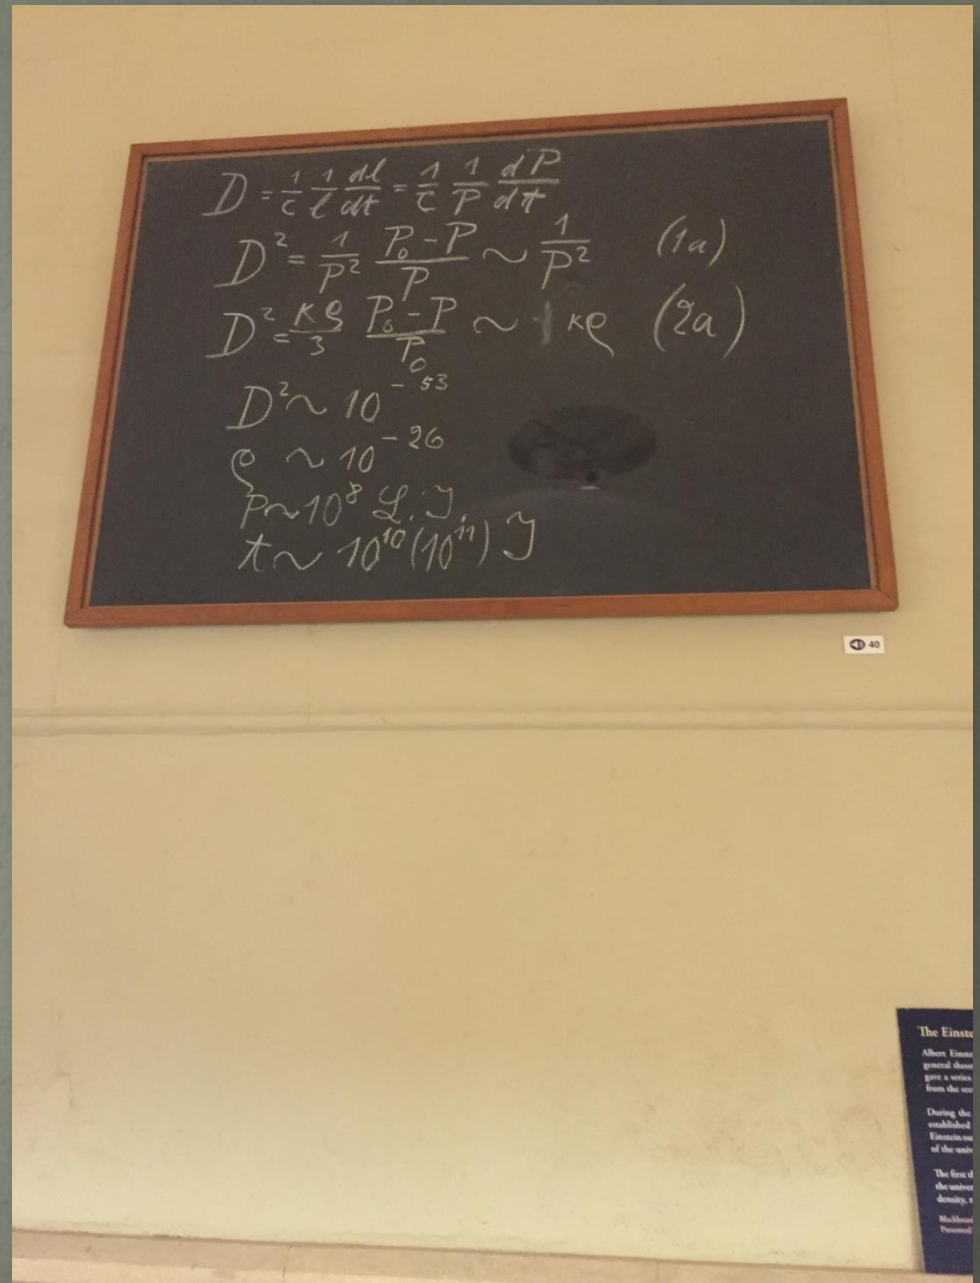 D = 1/c 1/l dl/dt = 1/c 1/P dP/dt
D² = 1/P² P₀-P/P ~ 1/P² (1a)
D² = κρ/3 P₀-P/P₀ ~ κρ (2a)
D² ~ 10⁻⁵³
ρ ~ 10⁻²⁶
P ~ 10⁸ L.J.
t ~ 10¹⁰(10¹¹) J
40
The
Albert
general
gave a series
from the
During the
established
Einstein
of the
The first
the
density,